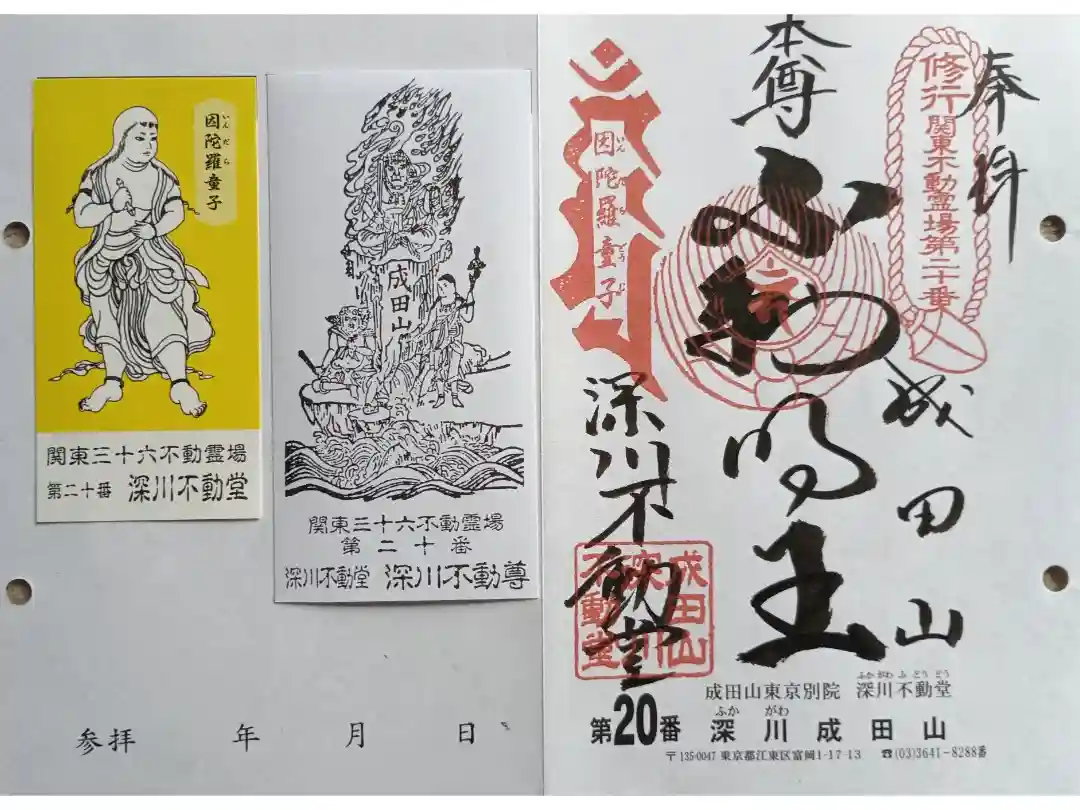 因陀羅童子
いんだら
関東三十六不動霊場
第二十番 深川不動堂
成田山
関東三十六不動霊場
第二十番
深川不動堂 深川不動尊
参拝 年 月 日
奉拝
修行関東不動霊場第二十番
成田山
本尊
不動明王
因陀羅童子
いんだらどうじ
深川不動堂
成田山
深川
不動堂
成田山東京別院 深川不動堂
ふかがわふどうどう
第20番 深川成田山
ふかがわ
〒135-0047 東京都江東区富岡1-17-13 ☎(03)3641-8288番